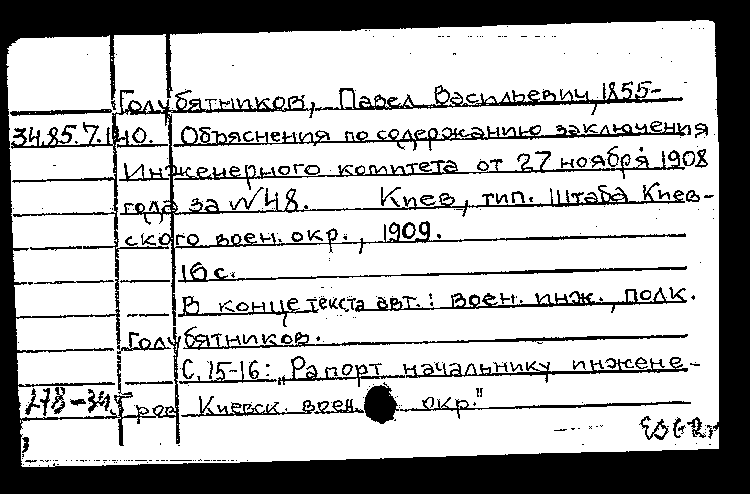 Голубятников, Павел Васильевич, 1855-
34.85.7.140. Объяснения по содержанию заключения
Инженерного комитета от 27 ноября 1908
года за №48. Киев, тип. Штаба Киев-
ского воен. окр., 1909.
16 с.
В конце текста авт.: воен. инж., полк.
Голубятников.
С. 15-16: „Рапорт начальнику инжене-
278-345 ров Киевск. воен. окр."